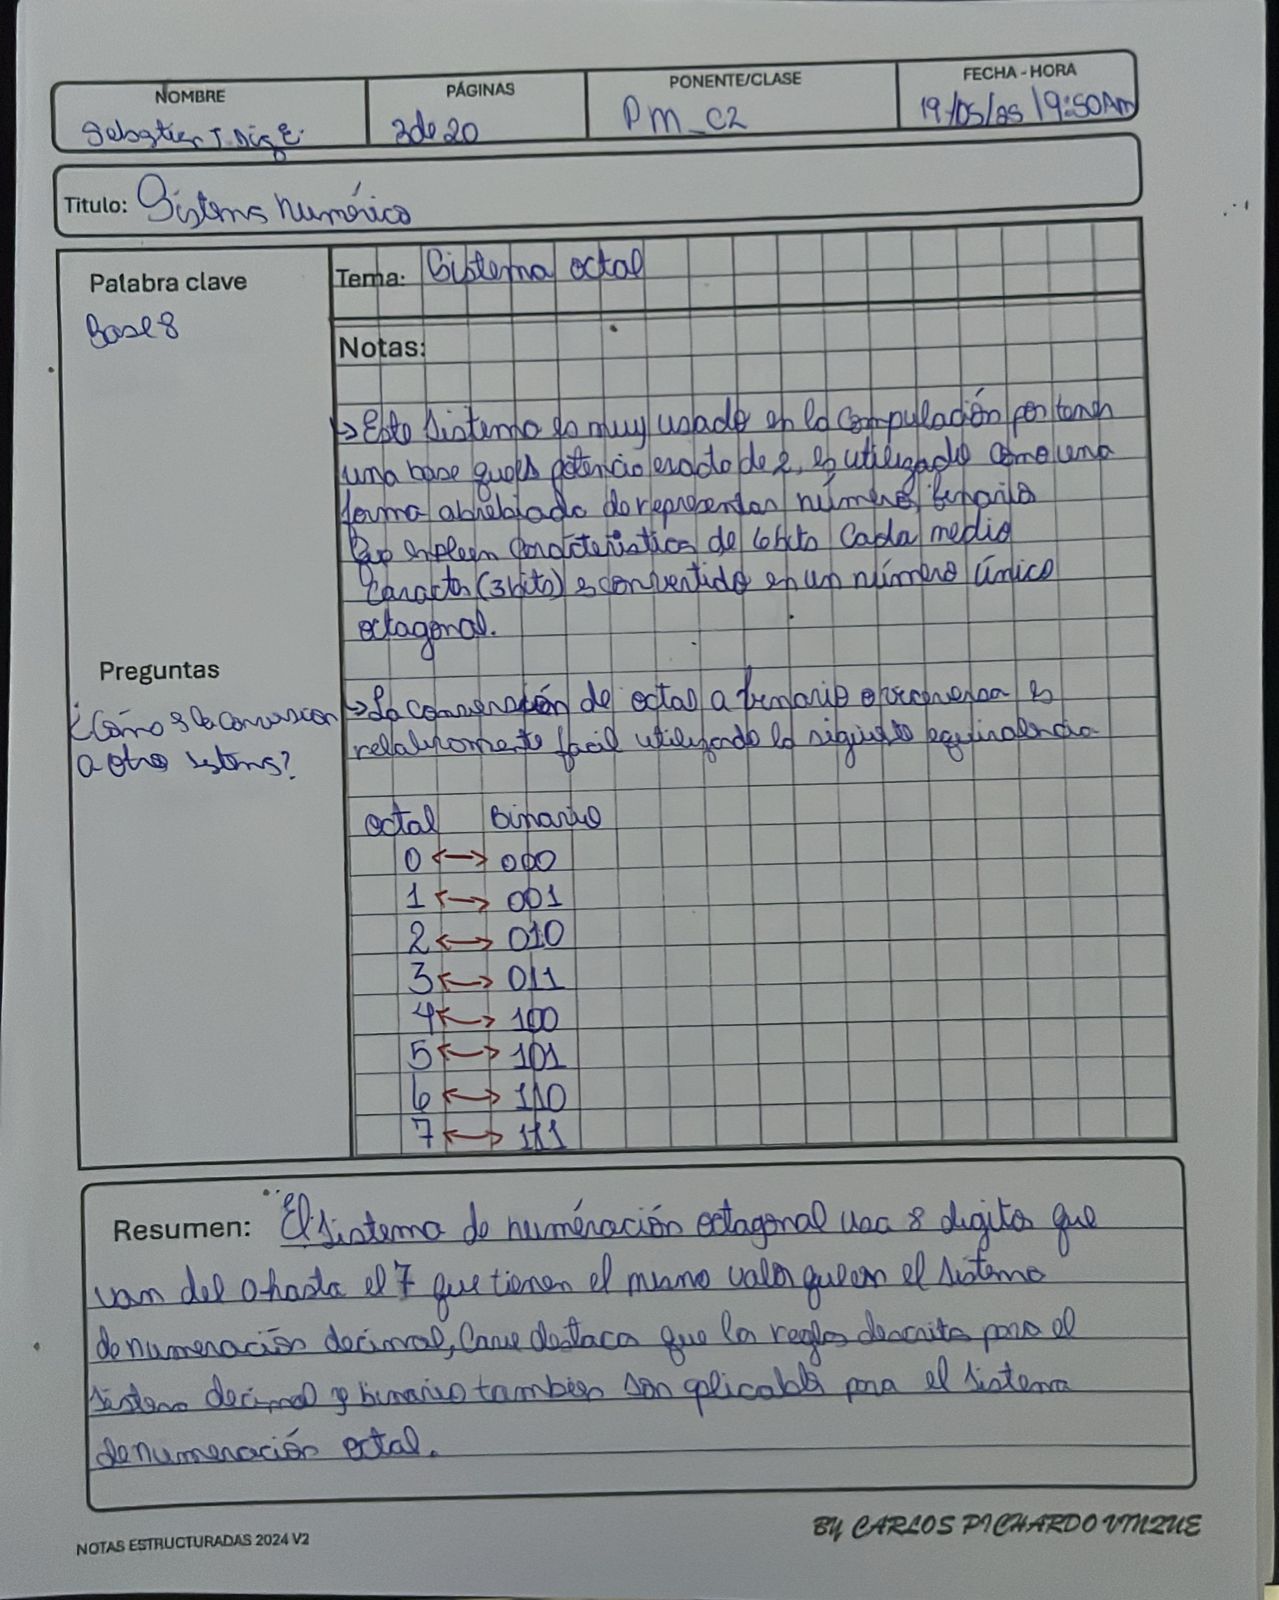 NOMBRE PÁGINAS PONENTE/CLASE FECHA - HORA
2de20 PM_C2 19/05/25 / 9:50AM
Titulo: Sistema numérico
Palabra clave
Base 8
Tema: Sistema octal
Notas:
→ Este sistema es muy usado en la computación por tener
una base que es potencia exacta de 2, es utilizado como una
forma abrebiada de representar número binario
que emplean caracteristica de 6 bits Cada medio
caracter (3bits) es convertido en un número único
octagonal.
Preguntas
¿Cómo es la conversion
a otro sistema?
→ La conversión de octal a binario o viceversa es
relativamente facil utilizando la siguiente equivalencia
octal Binario
0 ↔ 000
1 ↔ 001
2 ↔ 010
3 ↔ 011
4 ↔ 100
5 ↔ 101
6 ↔ 110
7 ↔ 111
Resumen: El sistema de numéración octagonal usa 8 digitos que
van del 0 hasta el 7 que tienen el mismo valor que en el sistema
de numeración decimal, Cave destacar que la regla descrita para el
sistema decimal y binario tambien son aplicable para el sistema
de numeración octal.
NOTAS ESTRUCTURADAS 2024 V2
BY CARLOS PICHARDO VIUZUE